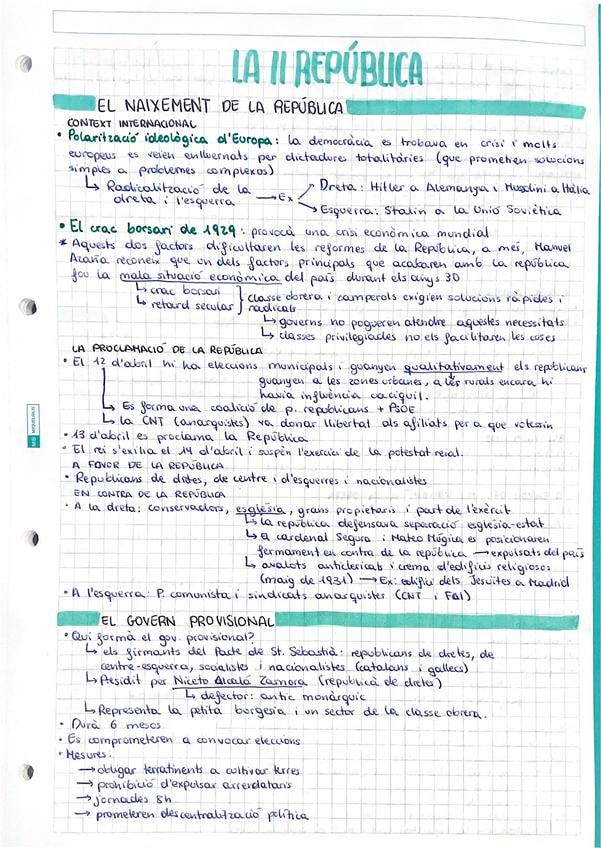 LA II REPÚBLICA
EL NAIXEMENT DE LA REPÚBLICA
CONTEXT INTERNACIONAL
• Polarització ideològica d'Europa: la democràcia es trobava en crisi i molts
europeus es veien enlluernats per dictadures totalitàries (que prometien solucions
simples a problemes complexos)
↳ Radicalització de la
dreta i l'esquerra → Ex
→ Dreta: Hitler a Alemanya i Mussolini a Itàlia
→ Esquerra: Stalin a la Unió Soviètica
• El crac borsari de 1929: provocà una crisi econòmica mundial
* Aquests dos factors dificultaren les reformes de la República, a més, Manuel
Azaña reconeix que un dels factors principals que acabaren amb la república
fou la mala situació econòmica del país durant els anys 30
↳ crac borsari
↳ retard secular
classe obrera i camperols exigien solucions ràpides i
radicals
↳ governs no pogueren atendre aquestes necessitats
↳ classes privilegiades no els facilitaren les coses
LA PROCLAMACIÓ DE LA REPÚBLICA
• El 12 d'abril hi ha eleccions municipals i guanyen qualitativament els republicans
guanyen a les zones urbanes, a les rurals encara hi
havia influència caciquil.
↳ Es forma una coalició de p. republicans + PSOE
↳ La CNT (anarquistes) va donar llibertat als afiliats per a que votessin
• 13 d'abril es proclama la República
• El rei s'exilia el 14 d'abril i suspèn l'exercici de la potestat reial.
A FAVOR DE LA REPÚBLICA
• Republicans de dretes, de centre i d'esquerres i nacionalistes
EN CONTRA DE LA REPÚBLICA
• A la dreta: conservadors, església, grans propietaris i part de l'exèrcit
↳ la república defensava separació església-estat
↳ El cardenal Segura i Mateo Múgica es posicionaren
fermament en contra de la república → expulsats del país
↳ avalots anticlericals i crema d'edificis religiosos
(maig de 1931) → Ex: edifici dels Jesuïtes a Madrid
• A l'esquerra: P. comunista i sindicats anarquistes (CNT i FAI)
EL GOVERN PROVISIONAL
• Qui formà el gov. provisional?
↳ els firmants del Pacte de St. Sebastià: republicans de dretes, de
centre-esquerra, socialistes i nacionalistes (catalans i gallecs)
↳ Presidit per Niceto Alcalá Zamora (república de dretes)
↳ defector: antic monàrquic
↳ Representa la petita burgesia i un sector de la classe obrera.
• Durà 6 mesos
• Es comprometeren a convocar eleccions
• Mesures:
→ obligar terratinents a cultivar terres
→ prohibició d'expulsar arrendataris
→ jornades 8h
→ prometeren descentralització política
MIQUELRIUS